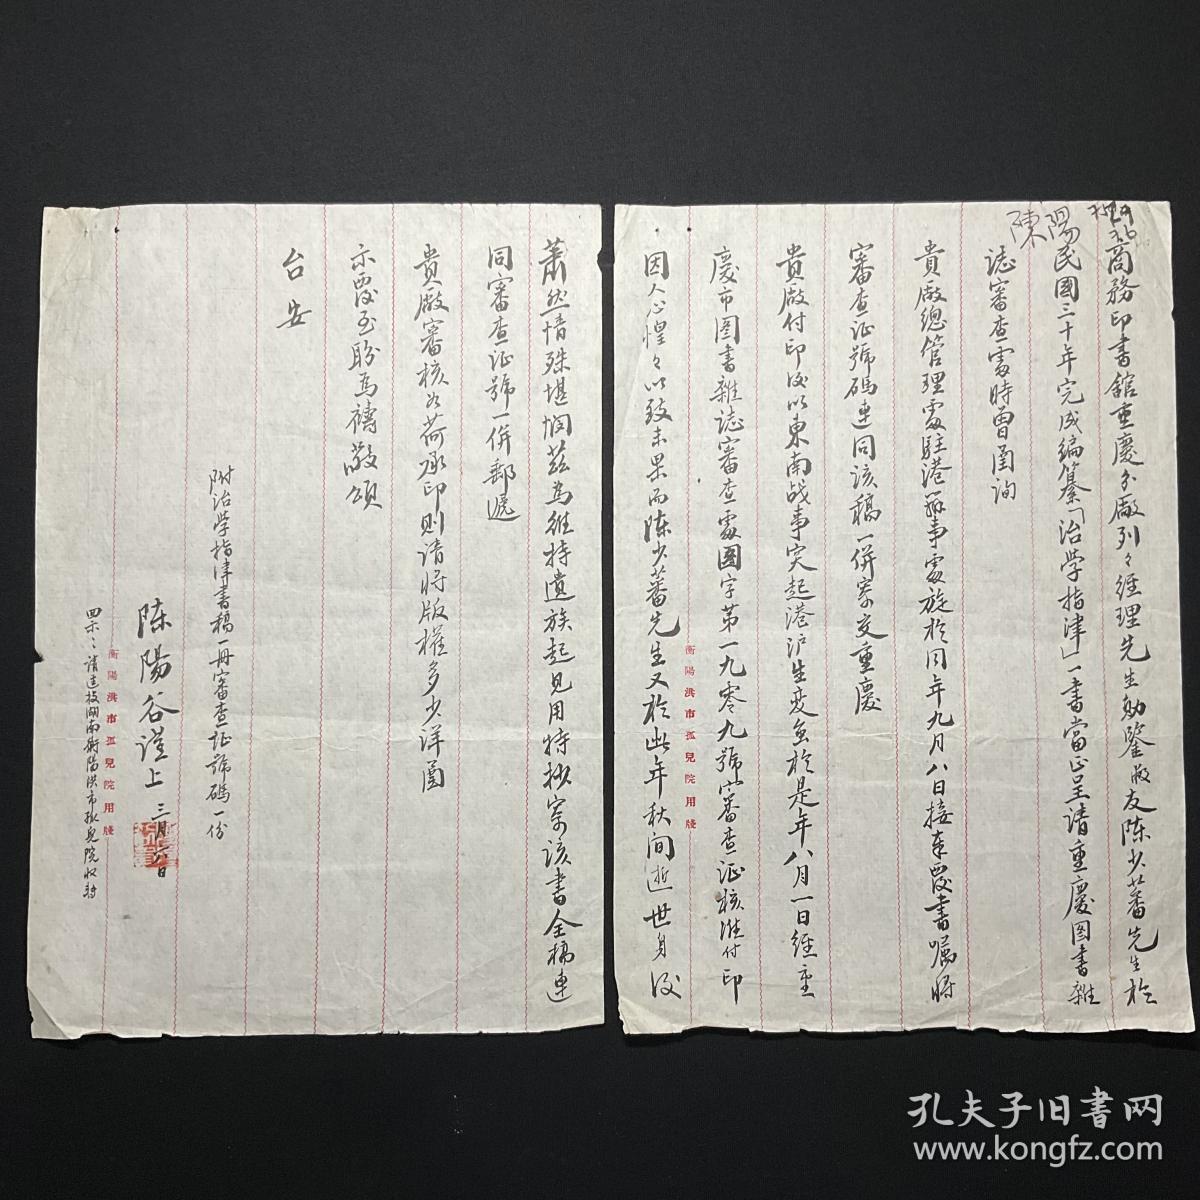 商務印書館重慶分廠列々經理先生勛鑒敝友陳少蕃先生於
民國三十年完成編纂「治学指津」一書當正呈请重慶图書雜
誌審查處時曾圅询
貴廠總管理處駐港辦事處旋於同年九月八日接奉覆書嘱將
審查证號碼連同该稿一併寄交重慶
貴廠付印後以東南战事突起港沪生变爰於是年八月一日經重
慶市图書雜誌審查處图字第一九零九號審查证核准付印
因人心惶々以致未果而陈少蕃先生又於此年秋间逝世身後
蕭然情殊堪悯茲為維持遺族起見用特抄寄该書全稿連
同審查证號一併郵遞
貴廠審核如荷承印则请將版權多少详圅
示覆至盼為禱敬頌
台安
附治学指津書稿一冊審查证號碼一份
陈陽谷谨上 三月六日
請迳投湖南衡陽洪市孤兒院收轉
陳陽
衡陽洪市孤兒院用牋
衡陽洪市孤兒院用牋
孔夫子旧书网
www.kongfz.com